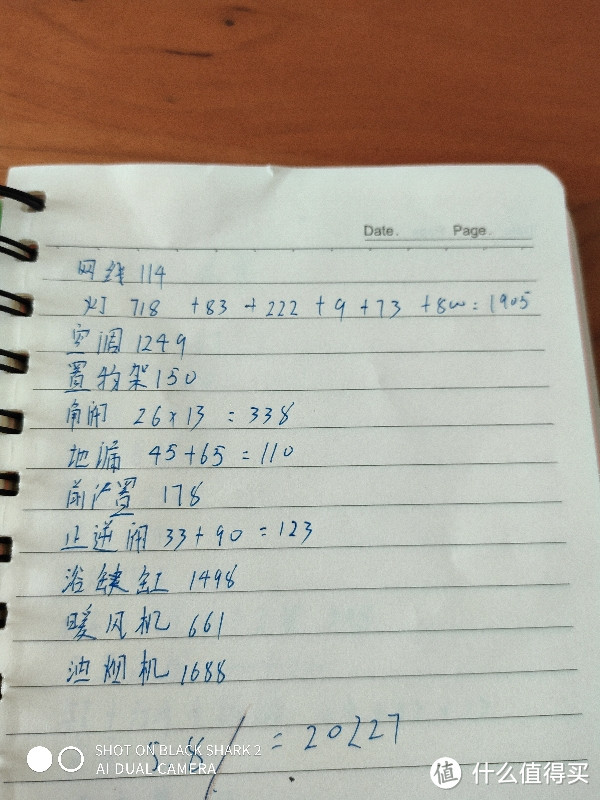 Date. Page.
网线 114
灯 718 +83 +222 +9 +73 +800=1905
空调 1249
置物架 150
角阀 26×13 =338
地漏 45+65 =110
前置 178
止逆阀 33+90 =123
浴缸 1498
暖风机 661
油烟机 1688
= 20227
SHOT ON BLACK SHARK 2
AI DUAL CAMERA
值 什么值得买